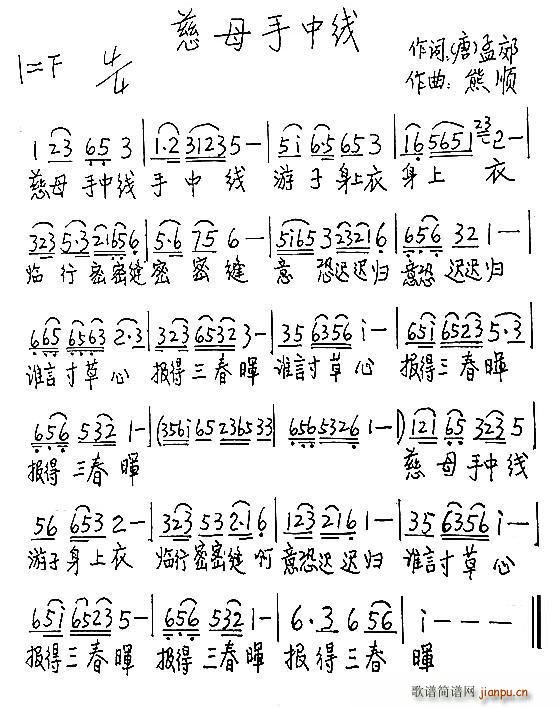 慈母手中线
作词:(唐)孟郊
1=F 4/4
作曲:熊顺
1 23 65 3 | 1·2 3123 5 - | 5i 6·5 65 3 | 16 5651 23 2 - |
慈母 手中线 手 中 线 游 子 身上衣 身上 衣
323 5·3 21656 | 5·6 75 6 - | 5i65 3 2321 6 | 656 32 1 - |
临 行 密密缝 密 密 缝 意 恐迟迟归 意恐 迟迟归
665 6563 2·3 | 323 6532 3 - | 35 6356 i - | 65i 6523 5·3 |
谁言寸草心 报得三春暉 谁言寸草心 报得三春暉
656 532 1 - | (356i 65 236533 | 656 5326 1 - ) | 121 65 323 5 |
报得 三春 暉 慈 母 手中线
56 653 2 - | 323 53 2·1 6 | 123 216 1 - | 35 6356 i - |
游子 身 上 衣 临行密密缝啊 意恐迟迟归 谁言寸草心
65i 6523 5 - | 656 532 1 - | 6·3 6 56 | i - - -
报得 三春暉 报得 三春暉 报 得 三春 暉
歌谱简谱网
jianpu.cn